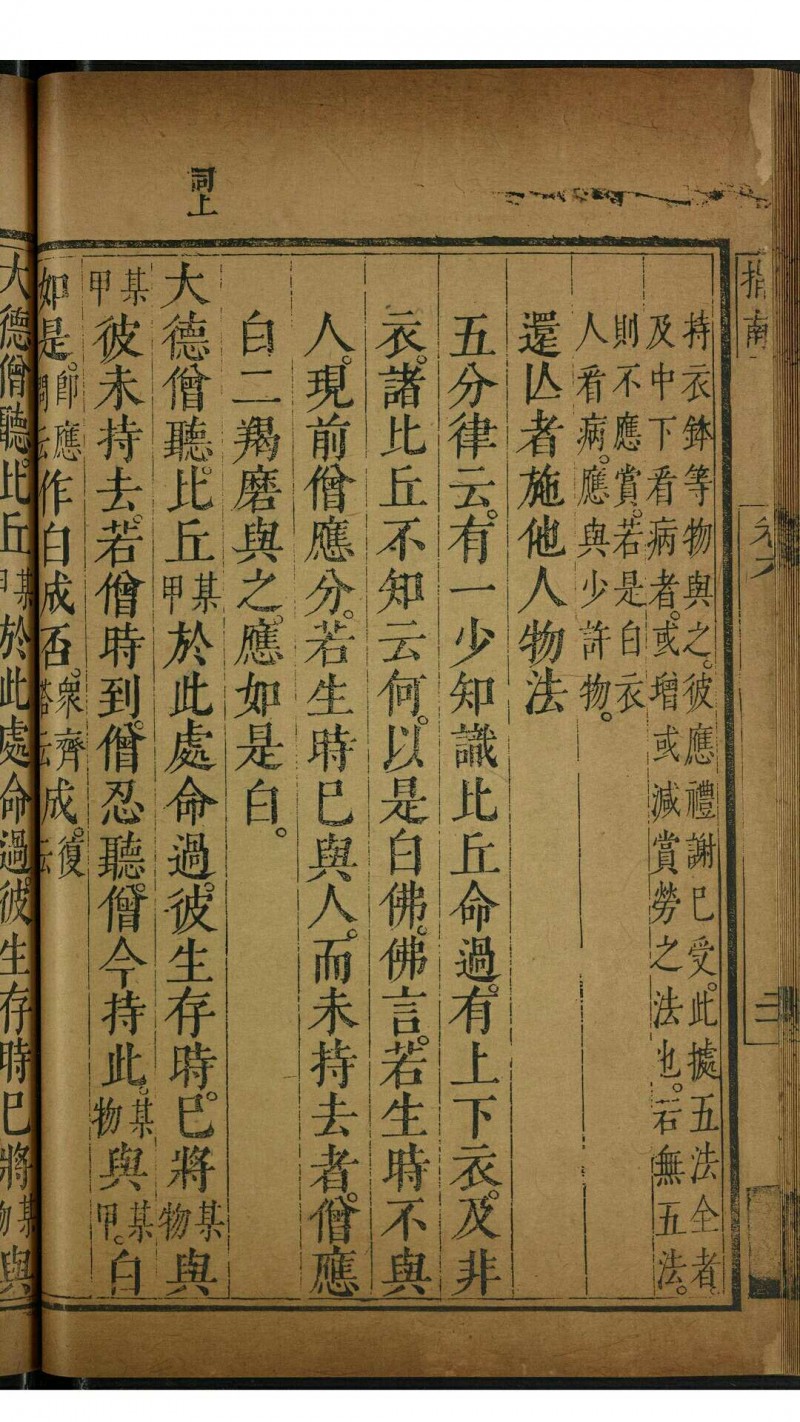 指南
持衣鉢等物與之。彼應禮謝已受。此據五法全者。
及中下看病者。或增或減賞勞之法也。若無五法。
則不應賞。若是白衣
人看病。應與少許物。
還亾者施他人物法
五分律云。有一少知識比丘命過。有上下衣。及非
衣。諸比丘不知云何。以是白佛。佛言。若生時不與
人。現前僧應分。若生時已與人。而未持去者。僧應
白二羯磨與之。應如是白。
大德僧聽。比丘某甲於此處命過。彼生存時。已將某物與
某甲彼未持去。若僧時到。僧忍聽。僧今持此。某物與某甲。白
如是。即應作白成否。衆齊成。復
大德僧聽。比丘某甲於此處命過。彼生存時已將某物與
詞上